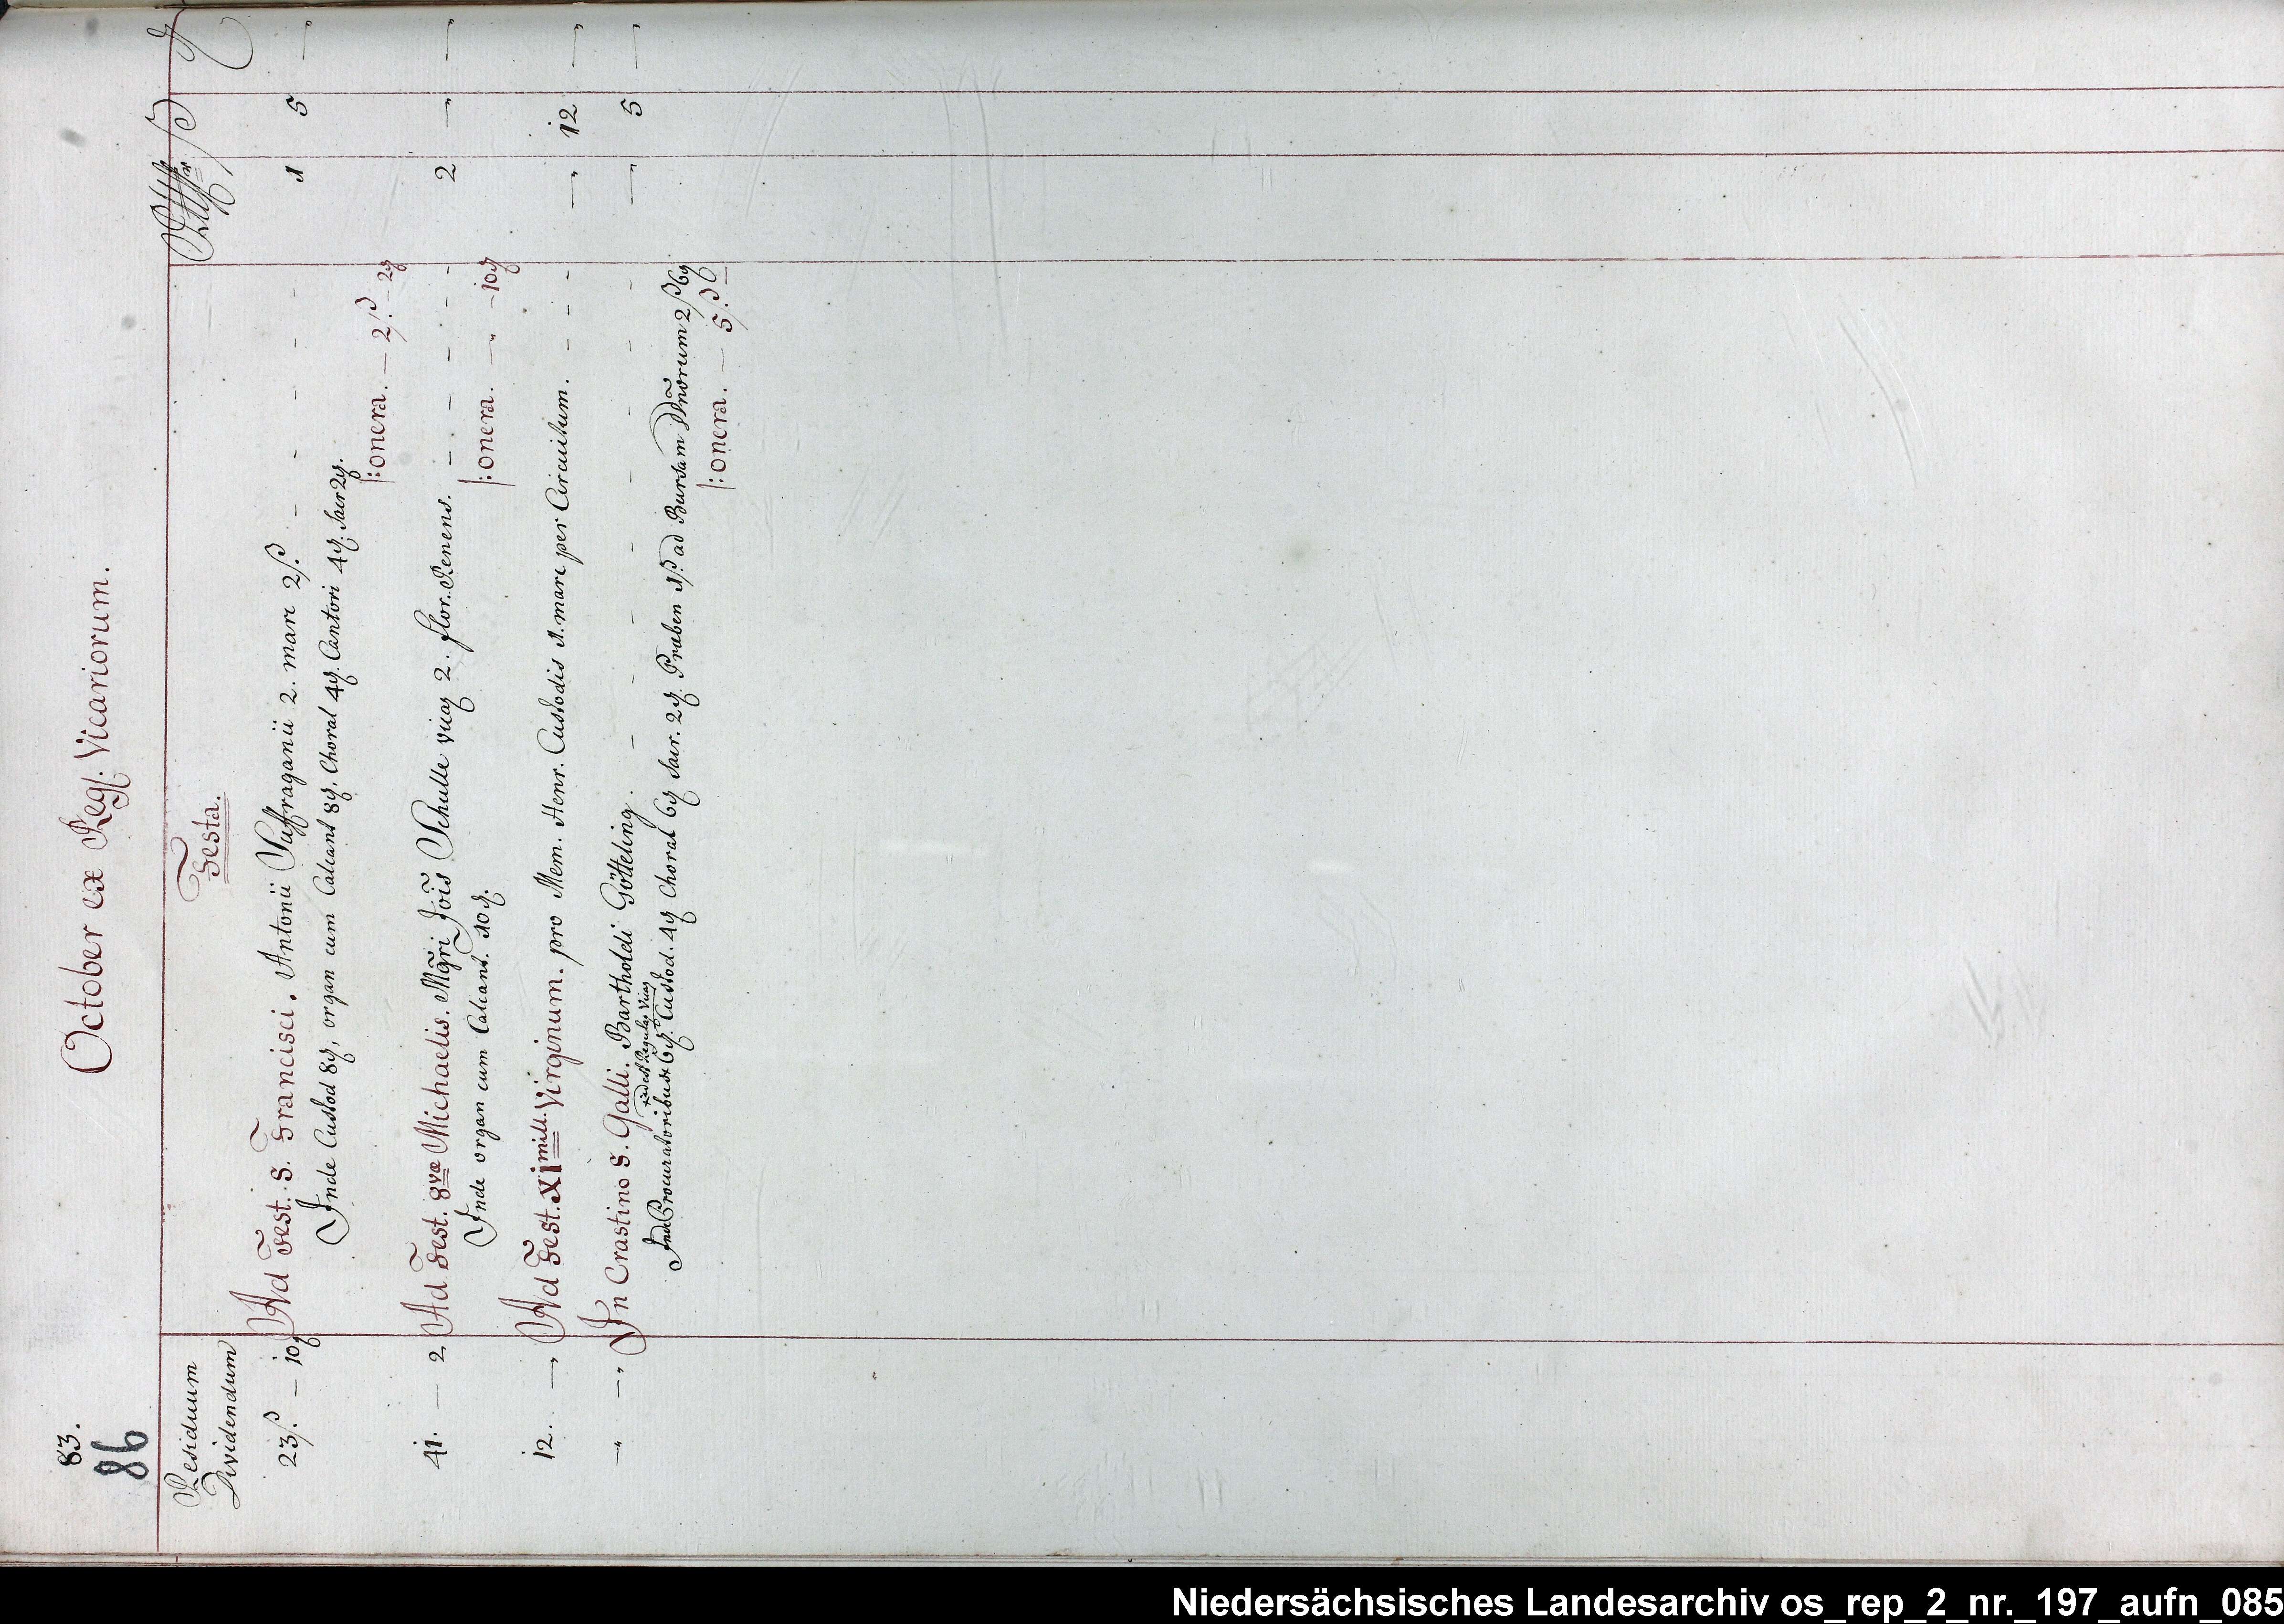 83.
86
October ex Reg. Vicariorum.
Residuum
Dividendum
Festa.
23 ß. — 10 ₰ Ad Fest. S. Francisci. Antonii Suffraganii 2. marc 2 ß. - - - - - 1 5 —,
Inde Custod 8 ₰, organ cum Calcant 8 ₰. Choral 4 ₰. Cantori 4 ₰. Sacr 2 ₰.
|: onera. — 2 ß. — 2 ₰
41. — 2, Ad Fest. 8væ Michaelis. Mgri Jöis Schulle vicar 2. flor. Renens. - - - - - 2 —, —,
Inde organ cum Calcant. 10 ₰.
|: onera. —, — 10 ₰
12. —, Ad Fest. Xi mill. Virginum. pro Mem. Henr. Custodis 1. marc per Circulum. - - - —, 12 —,
—, —, In Crastino S. Galli. Bartholdi Götteling. - - - - - - - —, 5 —,
Inde Procuratoribus 6 ₰. Custod. 4 ₰ Choral 6 ₰ Sacr. 2 ₰. Præben 1 ß. ad Bursam Dñorum 2 ß 6 ₰
|: onera. — 5 ß
Niedersächsisches Landesarchiv os_rep_2_nr._197_aufn_085